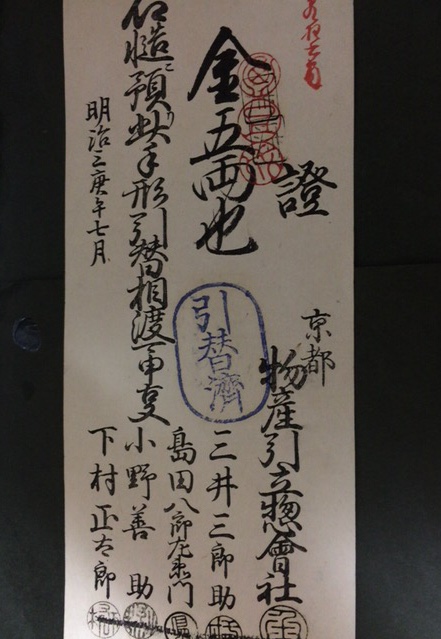 證
金五兩也
慥ニ預 手形引替相渡可申事
明治三庚午七月
京都
物産引立惣會社
三井三郎助
島田八郎左衛門
小野善助
下村正太郎
引替濟